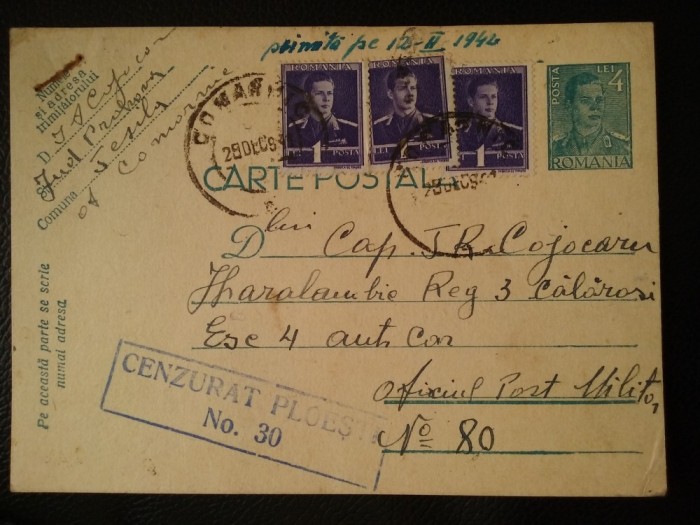 primită pe 12-II 1942
Numele
și adresa
trimițătorului
D.
Jud Prahova
Comuna
of Comarnic
Pe această parte se scrie
numai adresa
ROMANIA
1 LEI POSTA
ROMANIA
LEI 1 POSTA
ROMANIA
LEI 1 POSTA
POSTA LEI 4
ROMANIA
COMARNIC
28DEC9
28DEC9
CARTE POSTALĂ
Dlui Cap. T.R. Cojocaru
Haralambie Reg 3 Călărași
Esc 4 auto car
Oficiul Post Militar
No 80
CENZURAT PLOEȘTI
No. 30